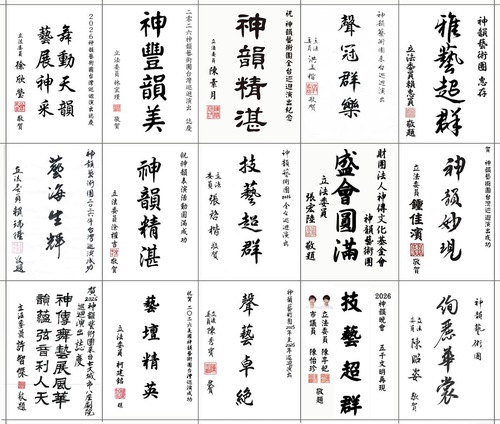 神韻藝術團 惠存
雅藝超群
立法委員賴惠員
敬題
神韻藝術團來台巡迴演出
聲冠群樂
立法委員
洪孟楷
敬賀
祝 神韻藝術團全台巡迴演出紀念
神韻精湛
立法委員
陳素月
二零二六神韻藝術團台灣巡迴演出 誌慶
神豐韻美
立法委員林宜瑾
敬賀
2026神韻藝術團台灣巡迴演出誌慶
舞動天韻
藝展神采
立法委員 徐欣瑩
敬賀
賀
神韻藝術團
神韻妙現
立法委員
鍾佳濱
敬題
財團法人神傳文化基金會
神韻藝術團
盛會圓滿
立法委員
張宏陸
敬題
神韻藝術團2026全台巡迴演出
技藝超群
立法委員
張啟楷
敬賀
祝神韻表演活動圓滿成功
神韻精湛
立法委員徐富癸
敬賀
神韻藝術團二〇二六年台灣巡演成功
藝海生輝
立法委員 賴瑞隆
敬題
神韻藝術團
絢麗華裳
立法委員
陳昭姿
敬賀
2026
神韻晚會 五千文明再現
技藝超群
立法委員 陳亭妃
市議員 陳怡珍
敬題
聲藝卓絕
立法委員
陳秀寳
賀
祝賀二〇二六美國神韻藝術團台灣巡演成功
藝壇精英
立法委員 柯建銘
題
賀2026神韻藝術團來台七大城市、八座劇院
巡迴演出誌慶
神傳舞藝展風華
韻蘊弦音利人天
立法委員 許智傑
敬題